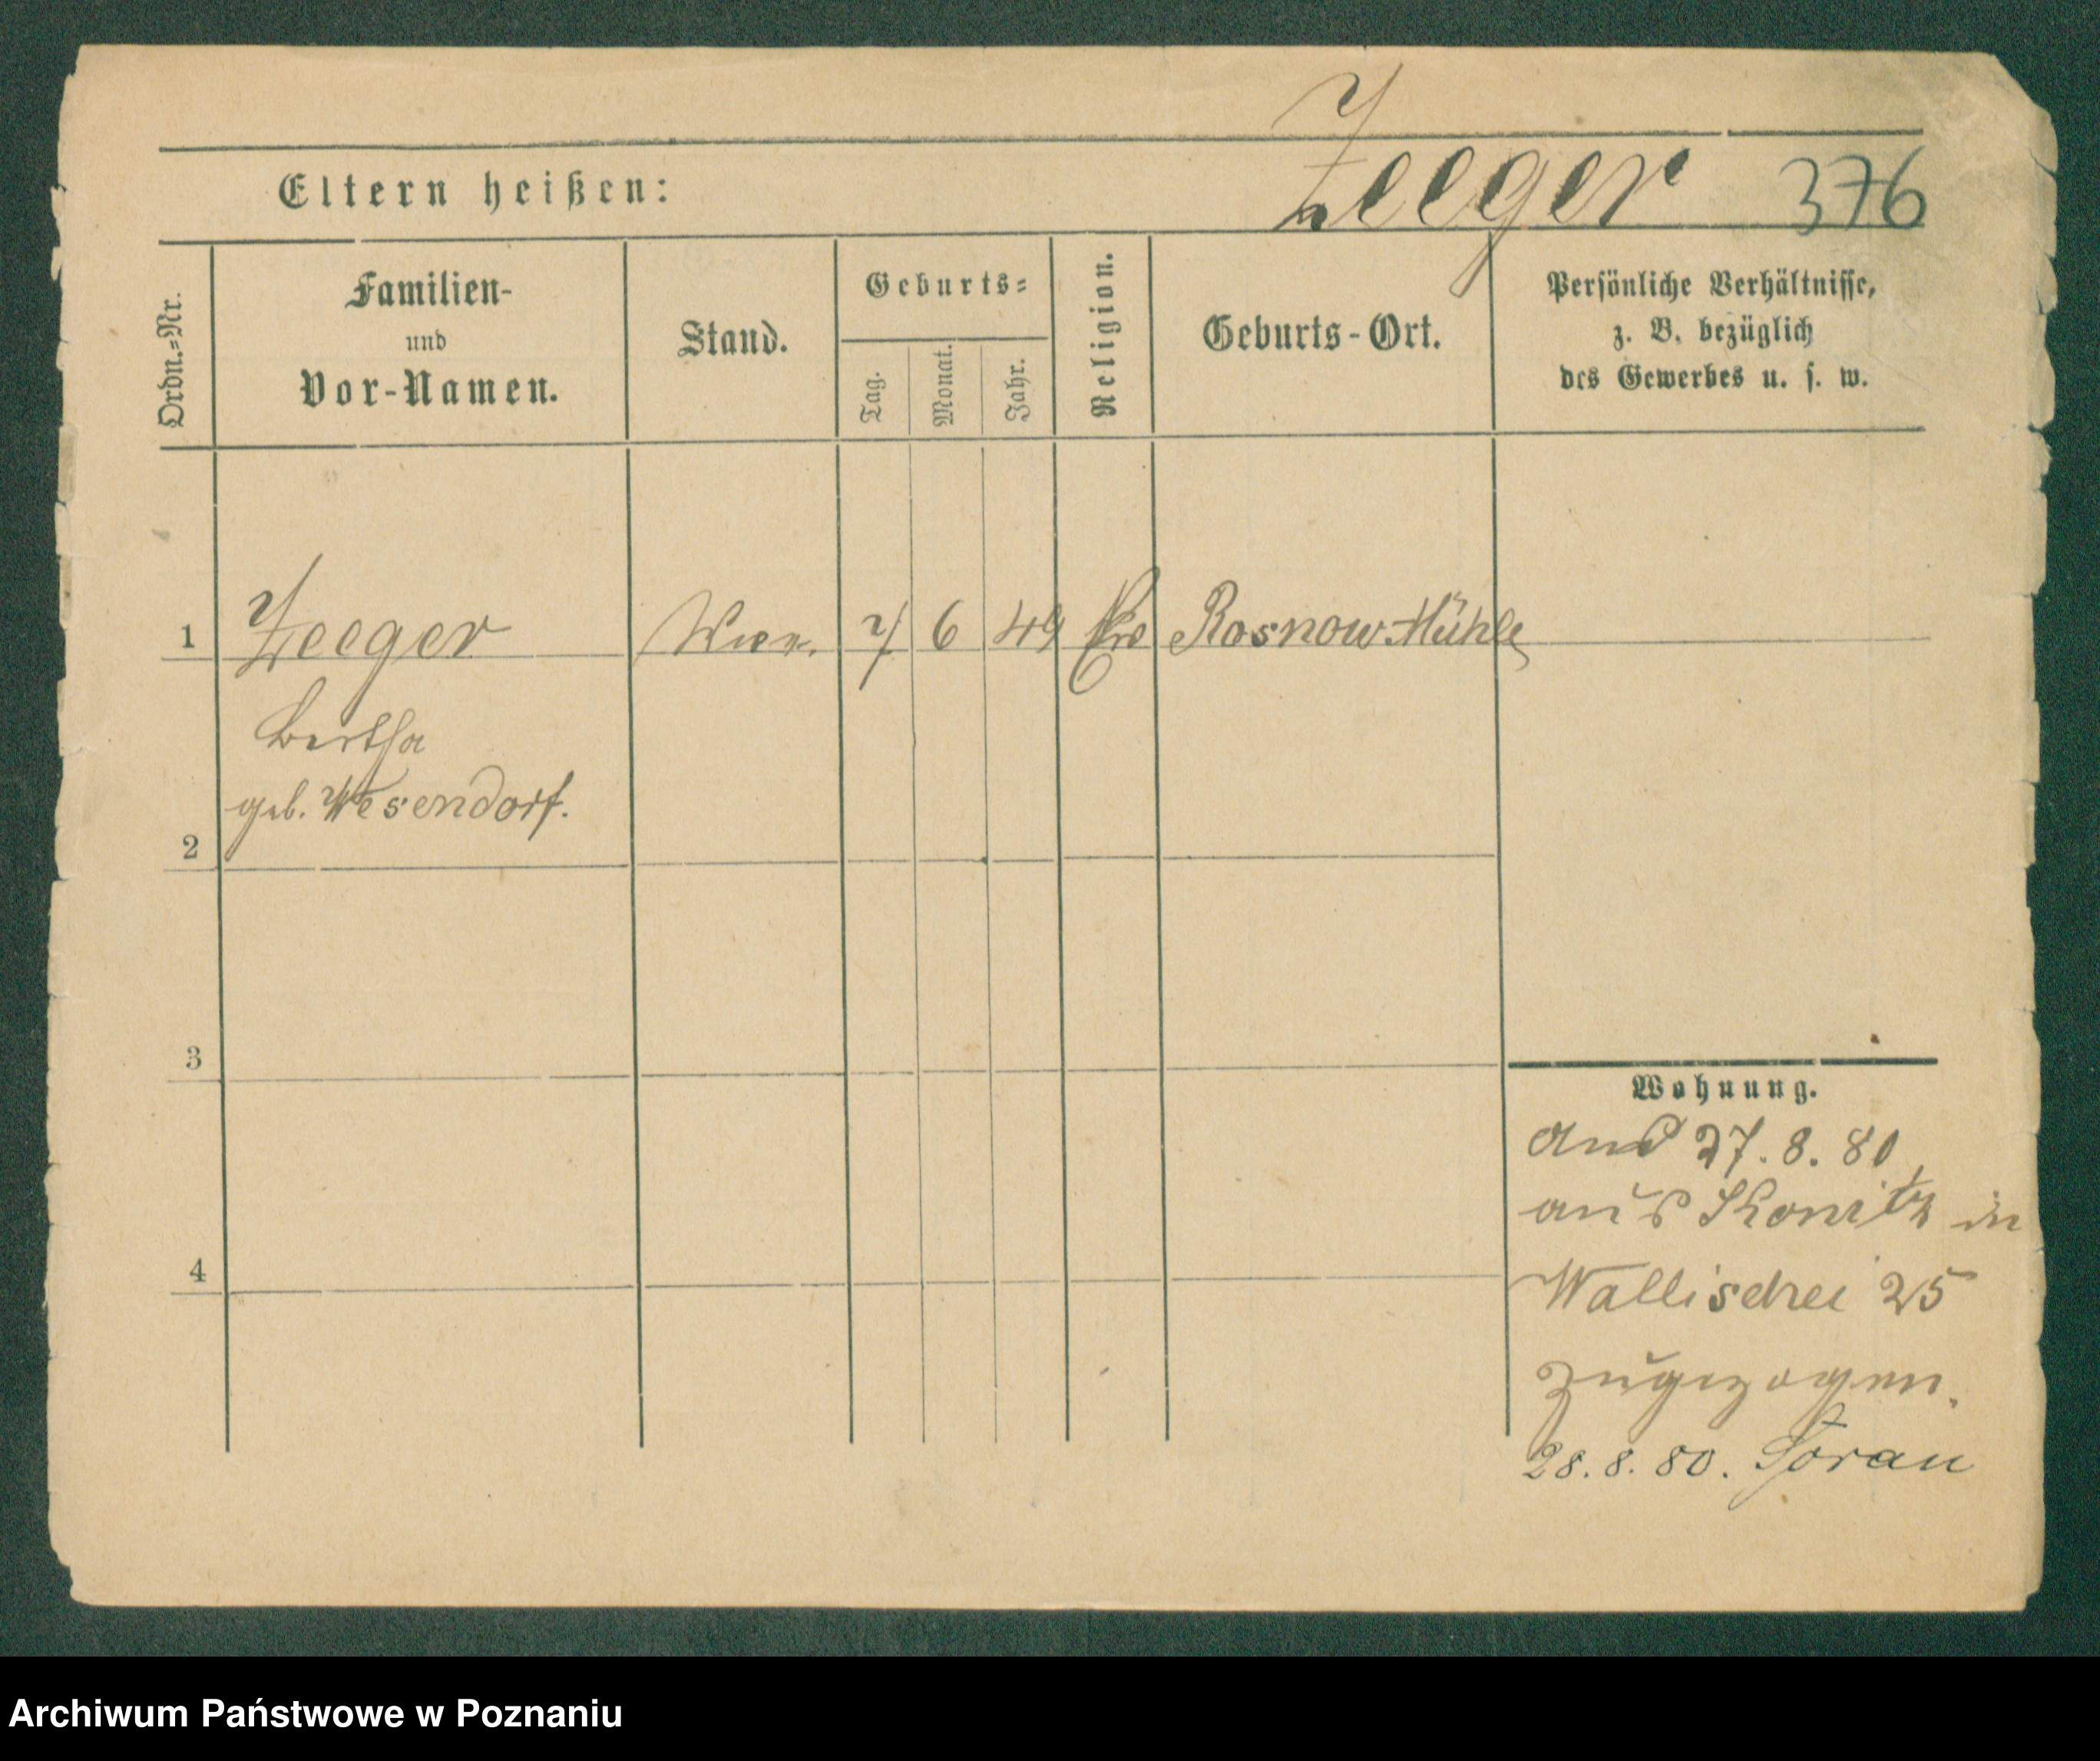 Zeeger 376
Eltern heißen:
Ordn.=Nr.
Familien-
und
Vor-Namen.
Stand.
Geburts=
Tag.
Monat.
Jahr.
Religion.
Geburts-Ort.
Persönliche Verhältnisse,
z. B. bezüglich
des Gewerbes u. s. w.
1 Zeeger 7 6 49 Rosnow Mühle
Bertha
geb. Wesendorf.
2
3
4
Wohnung.
27. 8. 80
aus Konitz in
Wallischei 25
zugezogen.
28. 8. 80. Sorau
Archiwum Państwowe w Poznaniu